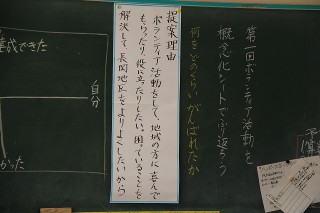 第一回ボランティア活動を
概念化シートでふり返ろう
何をどのくらいがんばれたか
提案理由
ボランティア活動をして、地域の方に喜んで
もらったり、役に立ったりしたい。困っていることを
解決して、長岡地区をよりよくしたいから
自分
達成できた
かった